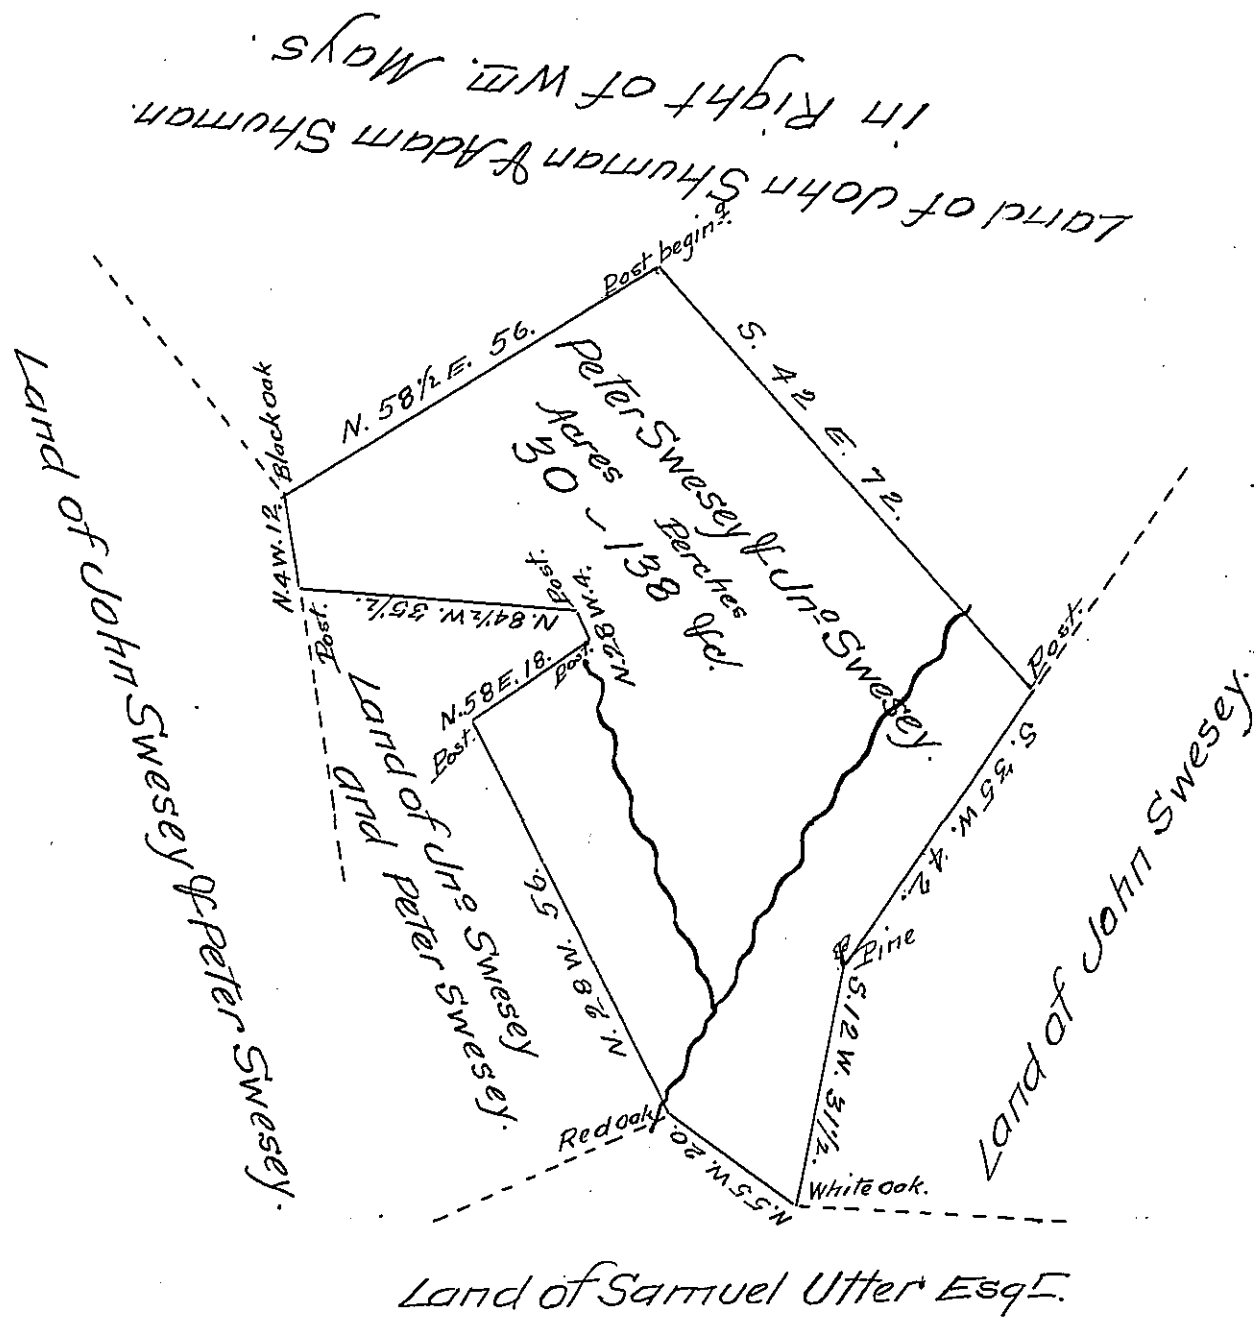 Land of John Shuman & Adam Shuman.
in Right of Wm. Mays.
Post begin.g
N. 58½ E. 56.
S. 42 E. 72.
Black oak
N.4W.12.
Post.
N.84½W. 35½.
Post.
N.28W.4.
Post.
N.58E.18.
Post.
Peter Swesey & Jno Swesey.
Acres Perches
30 ~ 138 &c.
Post.
S. 35 W. 42.
Pine
S.12W. 31½.
White oak.
N.55W.20.
Red oak
N. 28 W. 59.
Land of Jno Swesey
and Peter Swesey.
Land of John Swesey & Peter Swesey.
Land of John Swesey.
Land of Samuel Utter Esqr.